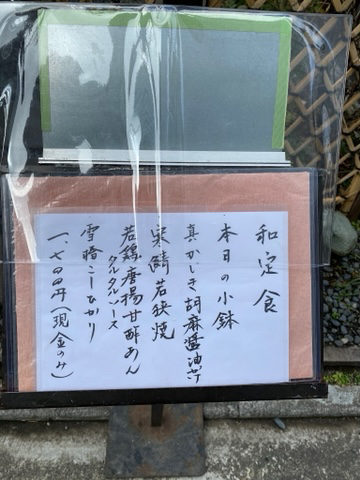 和定食
本日の小鉢
真かじき胡麻醤油
寒鯖若狭焼
若鶏唐揚甘酢あん
タルタルソース
こしひかり
円(現金のみ)